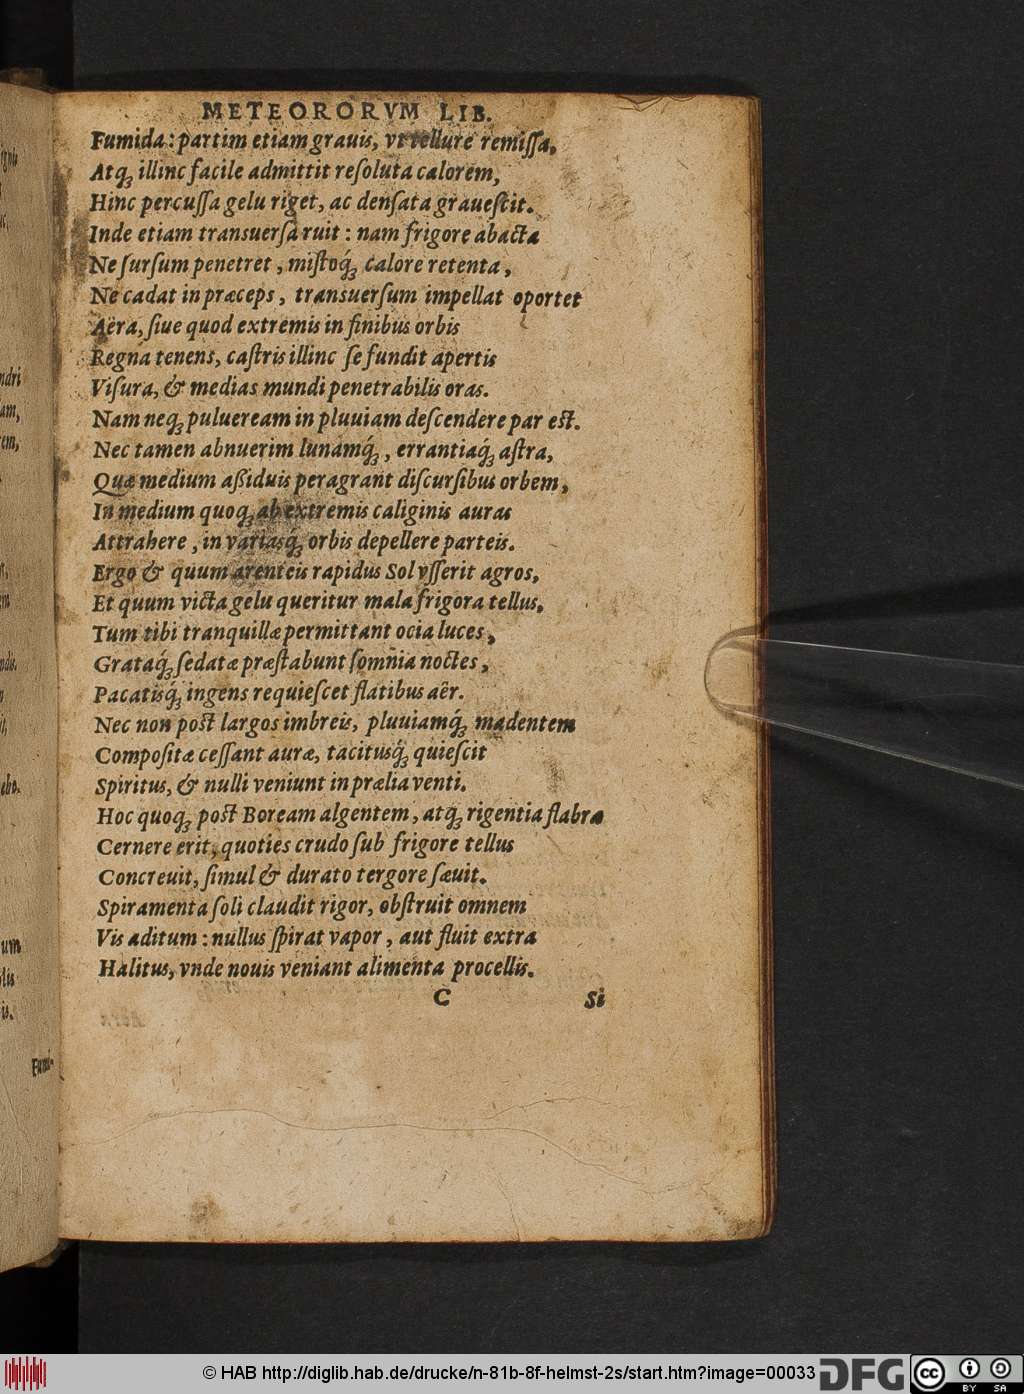 METEORORVM LIB.
Fumida: partim etiam grauis, vt tellure remiſſa,
Atq; illinc facile admittit reſoluta calorem,
Hinc percuſſa gelu riget, ac denſata graueſcit.
Inde etiam transuerſa ruit: nam frigore abacta
Ne ſurſum penetret, miſtoq́; calore retenta,
Ne cadat in præceps, transuerſum impellat oportet
Aëra, ſiue quod extremis in finibus orbis
Regna tenens, caſtris illinc ſe fundit apertis
Viſura, & medias mundi penetrabilis oras.
Nam neq; pulueream in pluuiam deſcendere par eſt.
Nec tamen abnuerim lunamq́;, errantiaq́; aſtra,
Quæ medium aßiduis peragrant diſcurſibus orbem,
In medium quoq; ab extremis caliginis auras
Attrahere, in variasq́; orbis depellere parteis.
Ergo & quum arenteis rapidus Sol vſſerit agros,
Et quum victa gelu queritur mala frigora tellus,
Tum tibi tranquillæ permittant ocia luces,
Grataq́; ſedatæ præſtabunt ſomnia noctes,
Pacatisq́; ingens requieſcet flatibus aër.
Nec non poſt largos imbreis, pluuiamq́; madentem
Compoſitæ ceſſant auræ, tacitusq́; quieſcit
Spiritus, & nulli veniunt in prælia venti.
Hoc quoq; poſt Boream algentem, atq; rigentia flabra
Cernere erit, quoties crudo ſub frigore tellus
Concreuit, ſimul & durato tergore ſæuit.
Spiramenta ſoli claudit rigor, obſtruit omnem
Vis aditum: nullus ſpirat vapor, aut fluit extra
Halitus, vnde nouis veniant alimenta procellis.
C Si
Fumi-
© HAB http://diglib.hab.de/drucke/n-81b-8f-helmst-2s/start.htm?image=00033
DFG
cc BY SA